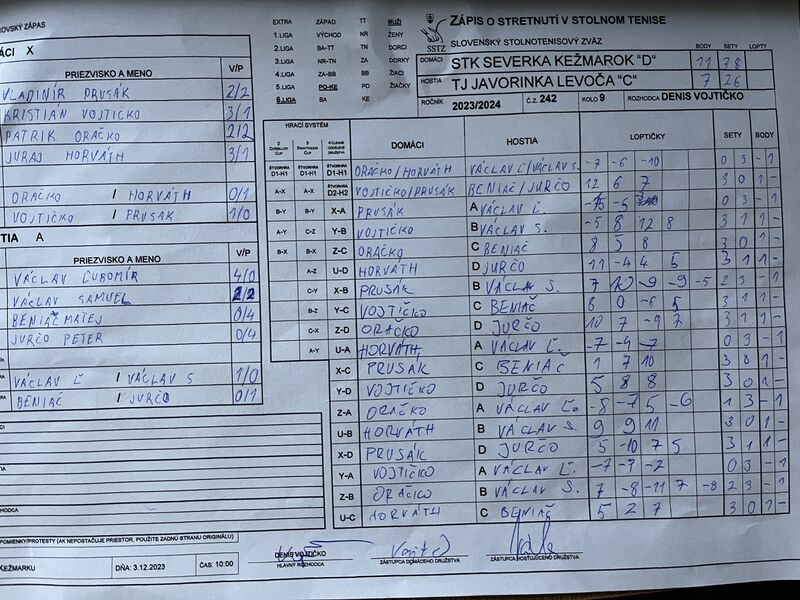 EXTRA ZÁPAD TT MUŽI
1.LIGA VÝCHOD NR ŽENY
2.LIGA BA-TT TN DORCI
3.LIGA NR-TN ZA DORKY
4.LIGA ZA-BB BB ŽIACI
5.LIGA PO-KE PO ŽIAČKY
6.LIGA BA KE
SSTZ
ZÁPIS O STRETNUTÍ V STOLNOM TENISE
SLOVENSKÝ STOLNOTENISOVÝ ZVÄZ
BODY SETY LOPTY
DOMÁCI STK SEVERKA KEŽMAROK "D" 11 78
HOSTIA TJ JAVORINKA LEVOČA "C" 7 26
ROČNÍK 2023/2024 Č.Z. 242 KOLO 9 ROZHODCA DENIS VOJTIČKO
OVSKÝ ZÁPAS
ÁCI X
PRIEZVISKO A MENO V/P
VLADIMÍR PRUSÁK 2/2
KRISTIÁN VOJTIČKO 3/1
PATRIK ORAČKO 2/2
JURAJ HORVÁTH 3/1
ORAČKO / HORVÁTH 0/1
VOJTIČKO / PRUSÁK 1/0
TIA A
PRIEZVISKO A MENO V/P
VÁCLAV ĽUBOMÍR 4/0
VÁCLAV SAMUEL 2/2
BENIAČ MATEJ 0/4
JURČO PETER 0/4
VÁCLAV Ľ / VÁCLAV S 1/0
BENIAČ / JURČO 0/1
HRACÍ SYSTÉM DOMÁCI HOSTIA LOPTIČKY SETY BODY
ŠTVORHRA D1-H1 ŠTVORHRA D1-H1 ŠTVORHRA D1-H1 ORAČKO/HORVÁTH VÁCLAV Ľ/VÁCLAV S. -7 -6 -10 0 3 - 1
A-X A-X ŠTVORHRA D2-H2 VOJTIČKO/PRUSÁK BENIAČ/JURČO 12 6 7 3 0 1 -
B-Y B-Y X-A PRUSÁK A VÁCLAV Ľ. 0 3 - 1
A-Y C-Z Y-B VOJTIČKO B VÁCLAV S. -5 8 12 8 3 1 1 -
B-X B-X Z-C ORAČKO C BENIAČ 8 5 8 3 0 1 -
A-Z U-D HORVÁTH D JURČO 11 -4 4 5 3 1 1 -
C-Y X-B PRUSÁK B VÁCLAV S. 7 10 -9 -9 -5 2 3 - 1
B-Z Y-C VOJTIČKO C BENIAČ 8 0 -6 5 3 1 1 -
C-X Z-D ORAČKO D JURČO 10 7 -9 7 3 1 1 -
A-Y U-A HORVÁTH A VÁCLAV Ľ -7 -4 -7 0 3 - 1
X-C PRUSÁK C BENIAČ 1 7 10 3 0 1 -
Y-D VOJTIČKO D JURČO 5 8 8 3 0 1 -
Z-A ORAČKO A VÁCLAV Ľ. -8 -7 5 -6 1 3 - 1
U-B HORVÁTH B VÁCLAV S. 9 9 11 3 0 1 -
X-D PRUSÁK D JURČO 5 -10 7 5 3 1 1 -
Y-A VOJTIČKO A VÁCLAV Ľ. -7 -7 -2 0 3 - 1
Z-B ORAČKO B VÁCLAV S. 7 -8 -11 7 -8 2 3 - 1
U-C HORVÁTH C BENIAČ 5 2 7 3 0 1 -
POMIENKY/PROTESTY (AK NEPOSTAČUJE PRIESTOR, POUŽITE ZADNÚ STRANU ORIGINÁLU)
KEŽMARKU DŇA: 3.12.2023 ČAS: 10:00
DENIS VOJTIČKO
HLAVNÝ ROZHODCA ZÁSTUPCA DOMÁCEHO DRUŽSTVA ZÁSTUPCA HOSŤUJÚCEHO DRUŽSTVA